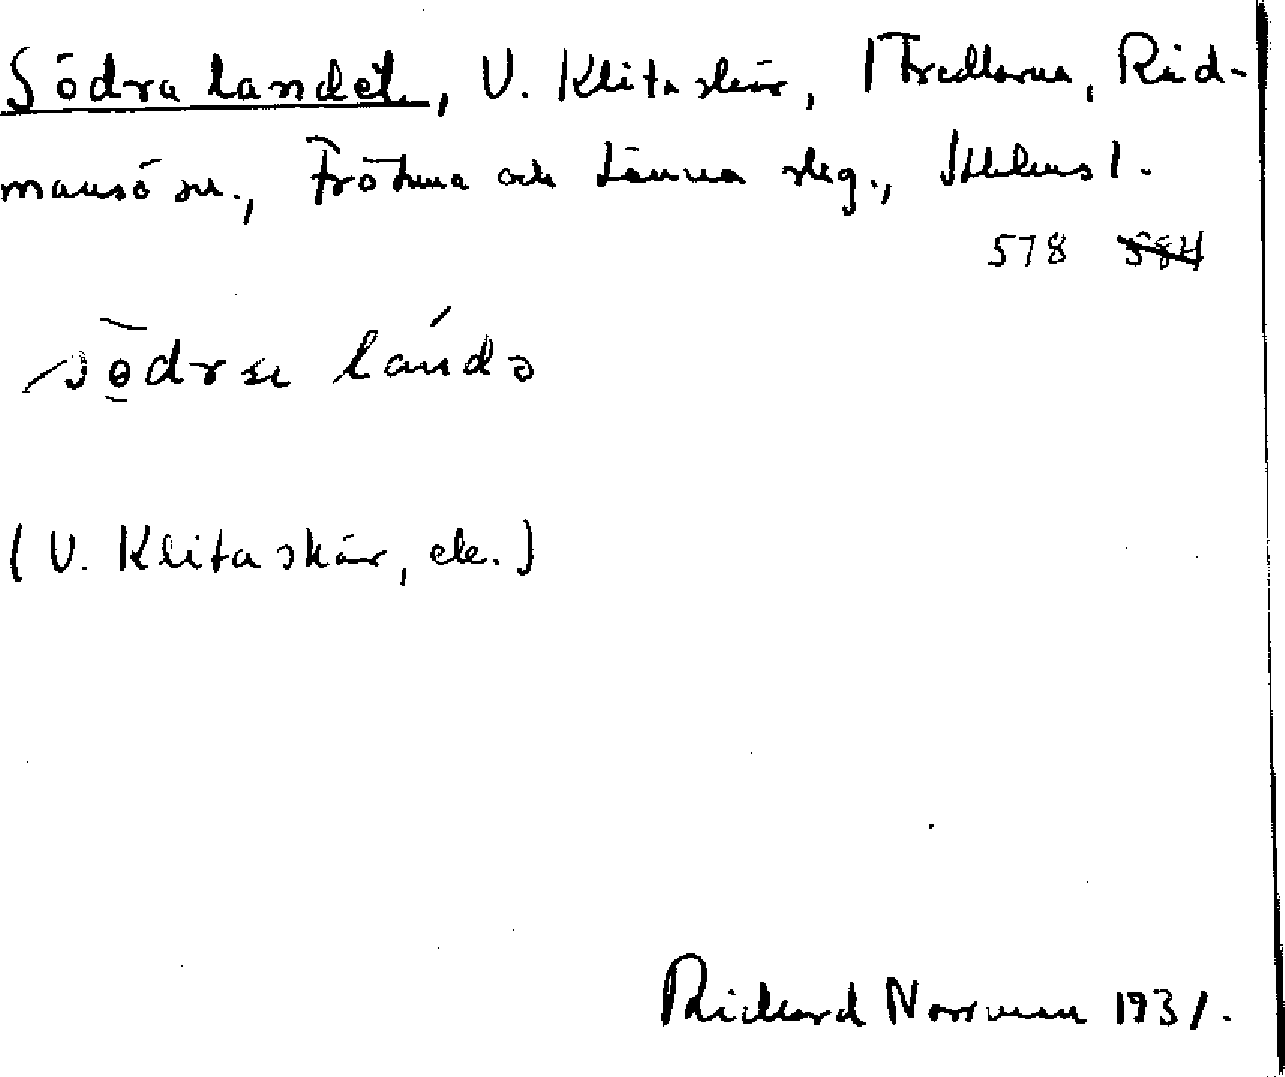 Södra landet, V. Klitaskär, Tredlarna, Råd-
mansö sn., Frötuna och Länna skg., Sthlms l.
578 584
södra lándə
(V. Klitaskär, etc.)
Rickard Norrman 1931.